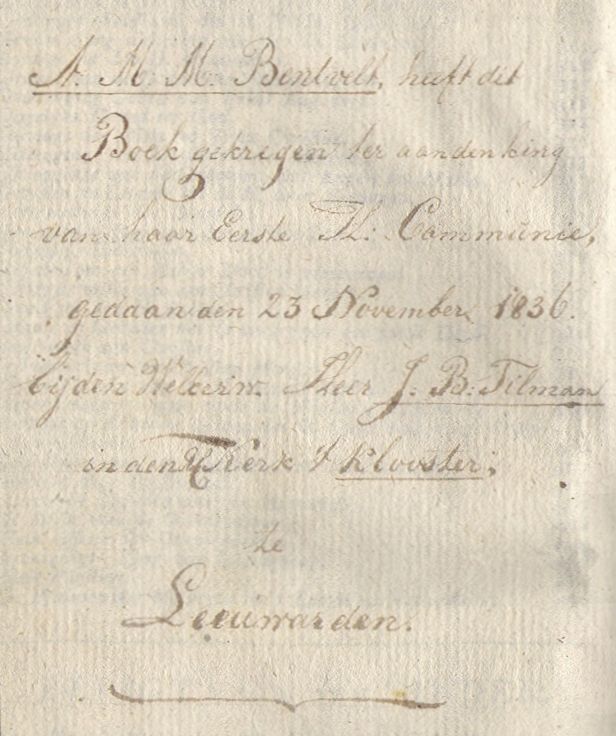 A. M. M. Bentvelt, heeft dit
Boek gekregen ter aandenking
van haar Eerste H: Communie,
gedaan den 23 November 1836.
bij den WelEerw. Heer J. B: Tilman
in den Kerk 't Klooster,
te
Leeuwarden.